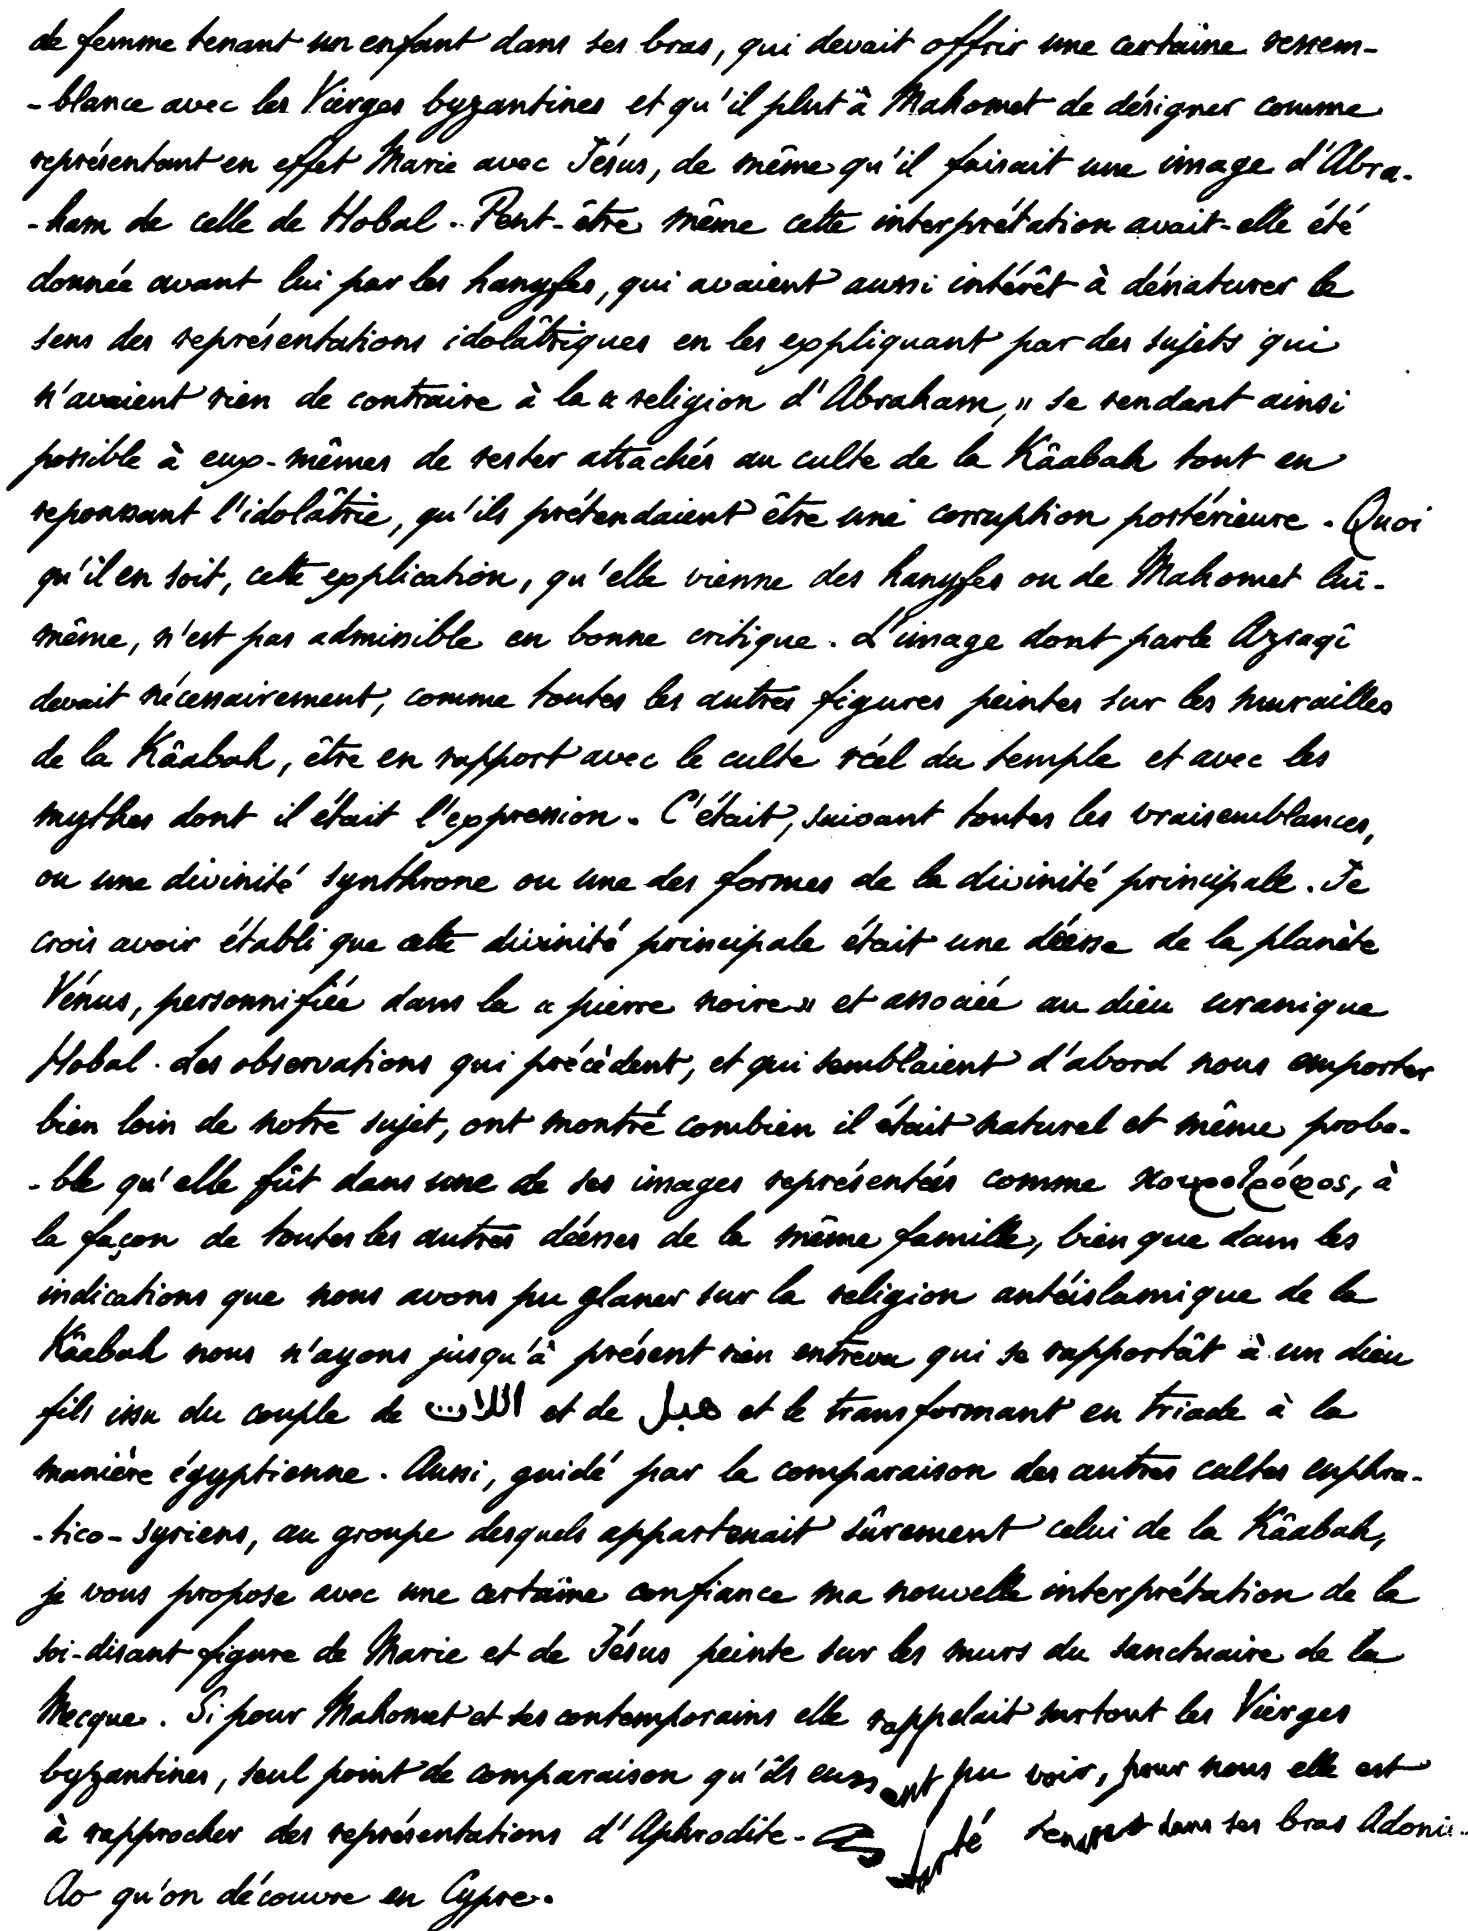 de femme tenant un enfant dans ses bras, qui devait offrir une certaine ressem-
-blance avec les Vierges byzantines et qu'il plut à Mahomet de désigner comme
représentant en effet Marie avec Jésus, de même qu'il faisait une image d'Abra-
-ham de celle de Hobal. Peut-être même cette interprétation avait-elle été
donnée avant lui par les hanyfes, qui avaient aussi intérêt à dénaturer le
sens des représentations idolâtriques en les expliquant par des sujets qui
n'avaient rien de contraire à la « religion d'Abraham, » se rendant ainsi
possible à eux-mêmes de rester attachés au culte de la Kâabah tout en
repoussant l'idolâtrie, qu'ils prétendaient être une corruption postérieure. Quoi
qu'il en soit, cette explication, qu'elle vienne des hanyfes ou de Mahomet lui-
même, n'est pas admissible en bonne critique. L'image dont parle Azraqî
devait nécessairement, comme toutes les autres figures peintes sur les murailles
de la Kâabah, être en rapport avec le culte réel du temple et avec les
mythes dont il était l'expression. C'était, suivant toutes les vraisemblances,
ou une divinité synthrone ou une des formes de la divinité principale. Je
crois avoir établi que cette divinité principale était une déesse de la planète
Vénus, personnifiée dans la « pierre noire » et associée au dieu uranique
Hobal. Les observations qui précèdent, et qui semblaient d'abord nous emporter
bien loin de notre sujet, ont montré combien il était naturel et même proba-
-ble qu'elle fût dans une de ses images représentées comme κουροτρόφος, à
la façon de toutes les autres déesses de la même famille, bien que dans les
indications que nous avons pu glaner sur la religion antéislamique de la
Kâabah nous n'ayons jusqu'à présent rien entrevu qui se rapportât à un dieu
fils issu du couple de اللات et de هبل et le transformant en triade à la
manière égyptienne. Aussi, guidé par la comparaison des autres cultes euphra-
-tico-syriens, au groupe desquels appartenait sûrement celui de la Kâabah,
je vous propose avec une certaine confiance ma nouvelle interprétation de la
soi-disant figure de Marie et de Jésus peinte sur les murs du sanctuaire de la
Mecque. Si pour Mahomet et ses contemporains elle rappelait surtout les Vierges
byzantines, seul point de comparaison qu'ils eussent pu voir, pour nous elle est
à rapprocher des représentations d'Aphrodite-Astarté tenant dans ses bras Adonis-
Ao qu'on découvre en Cypre.